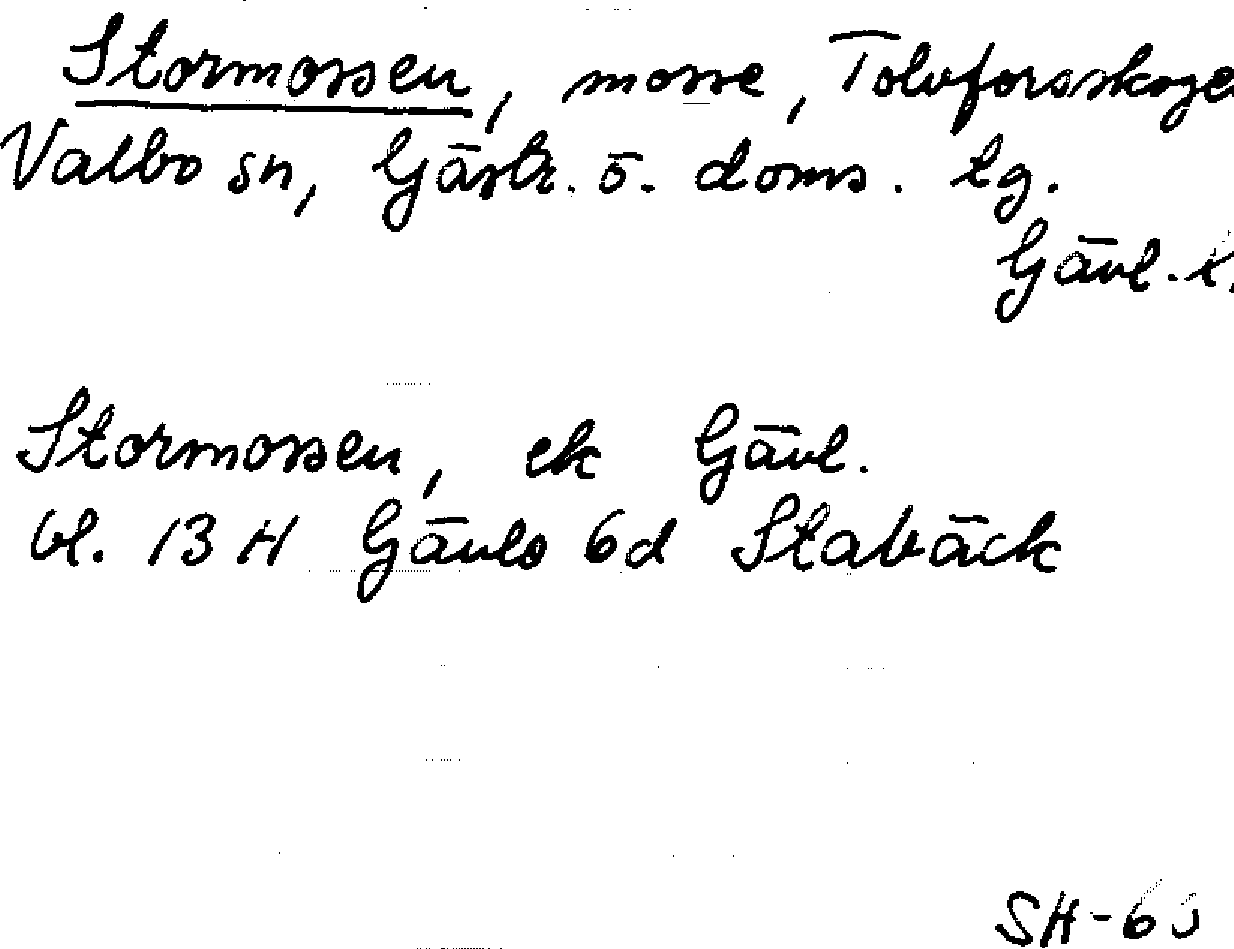 Stormossen, mosse, Tolvforsskoge
Valbo sn, Gästr. ö. doms. lg.
Gävl. l.
Stormossen, ek Gävl.
bl. 13 H Gävle 6d Stabäck